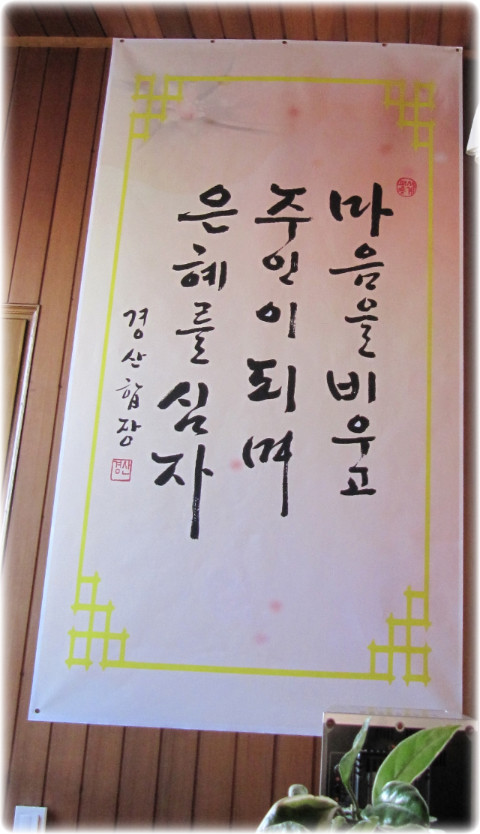 마음을비우고
주인이되며
은혜를심자
경산합장
경산